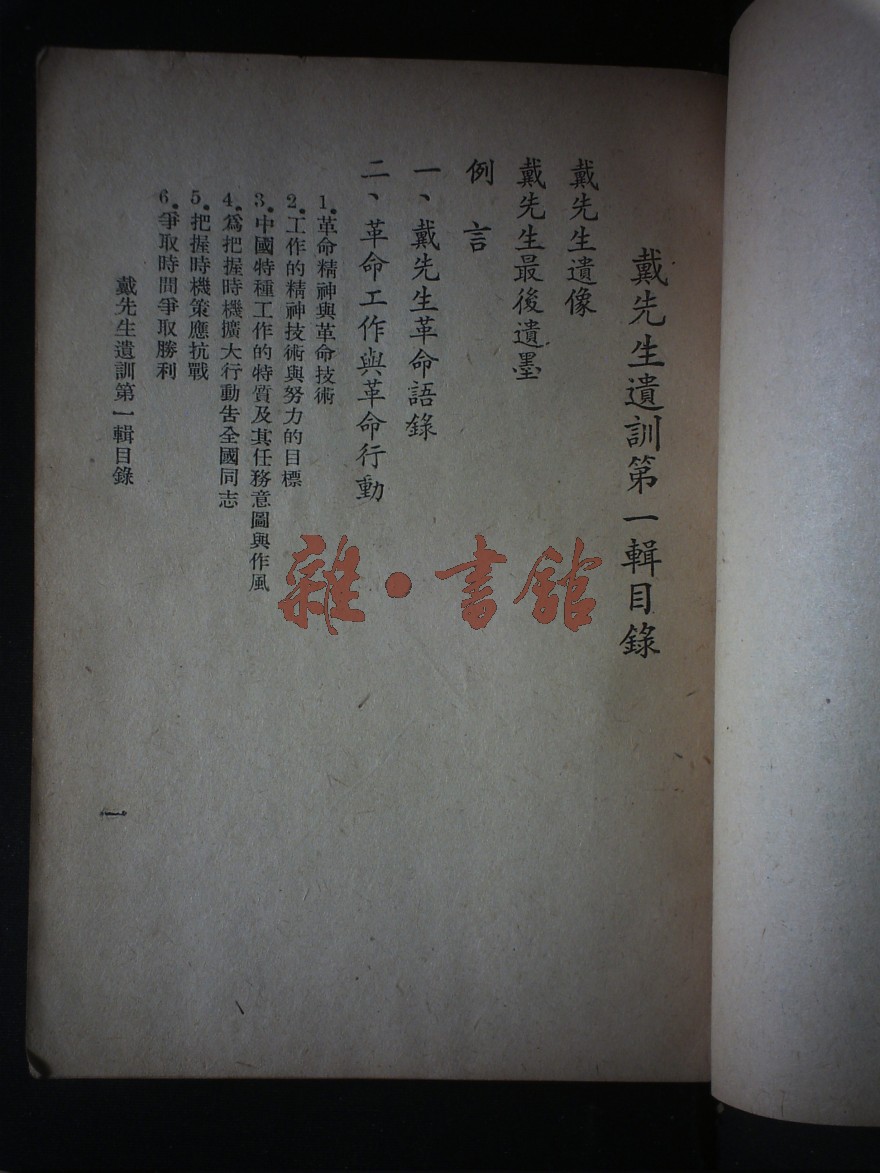 戴先生遺訓第一輯目錄
戴先生遺像
戴先生最後遺墨
例言
一、戴先生革命語錄
二、革命工作與革命行動
1.革命精神與革命技術
2.工作的精神技術與努力的目標
3.中國特種工作的特質及其任務意圖與作風
4.爲把握時機擴大行動告全國同志
5.把握時機策應抗戰
6.爭取時間爭取勝利
戴先生遺訓第一輯目錄
一
雜·書館